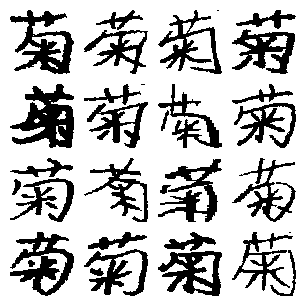 菊菊菊菊
菊菊菊菊
菊菊菊菊
菊菊菊菊